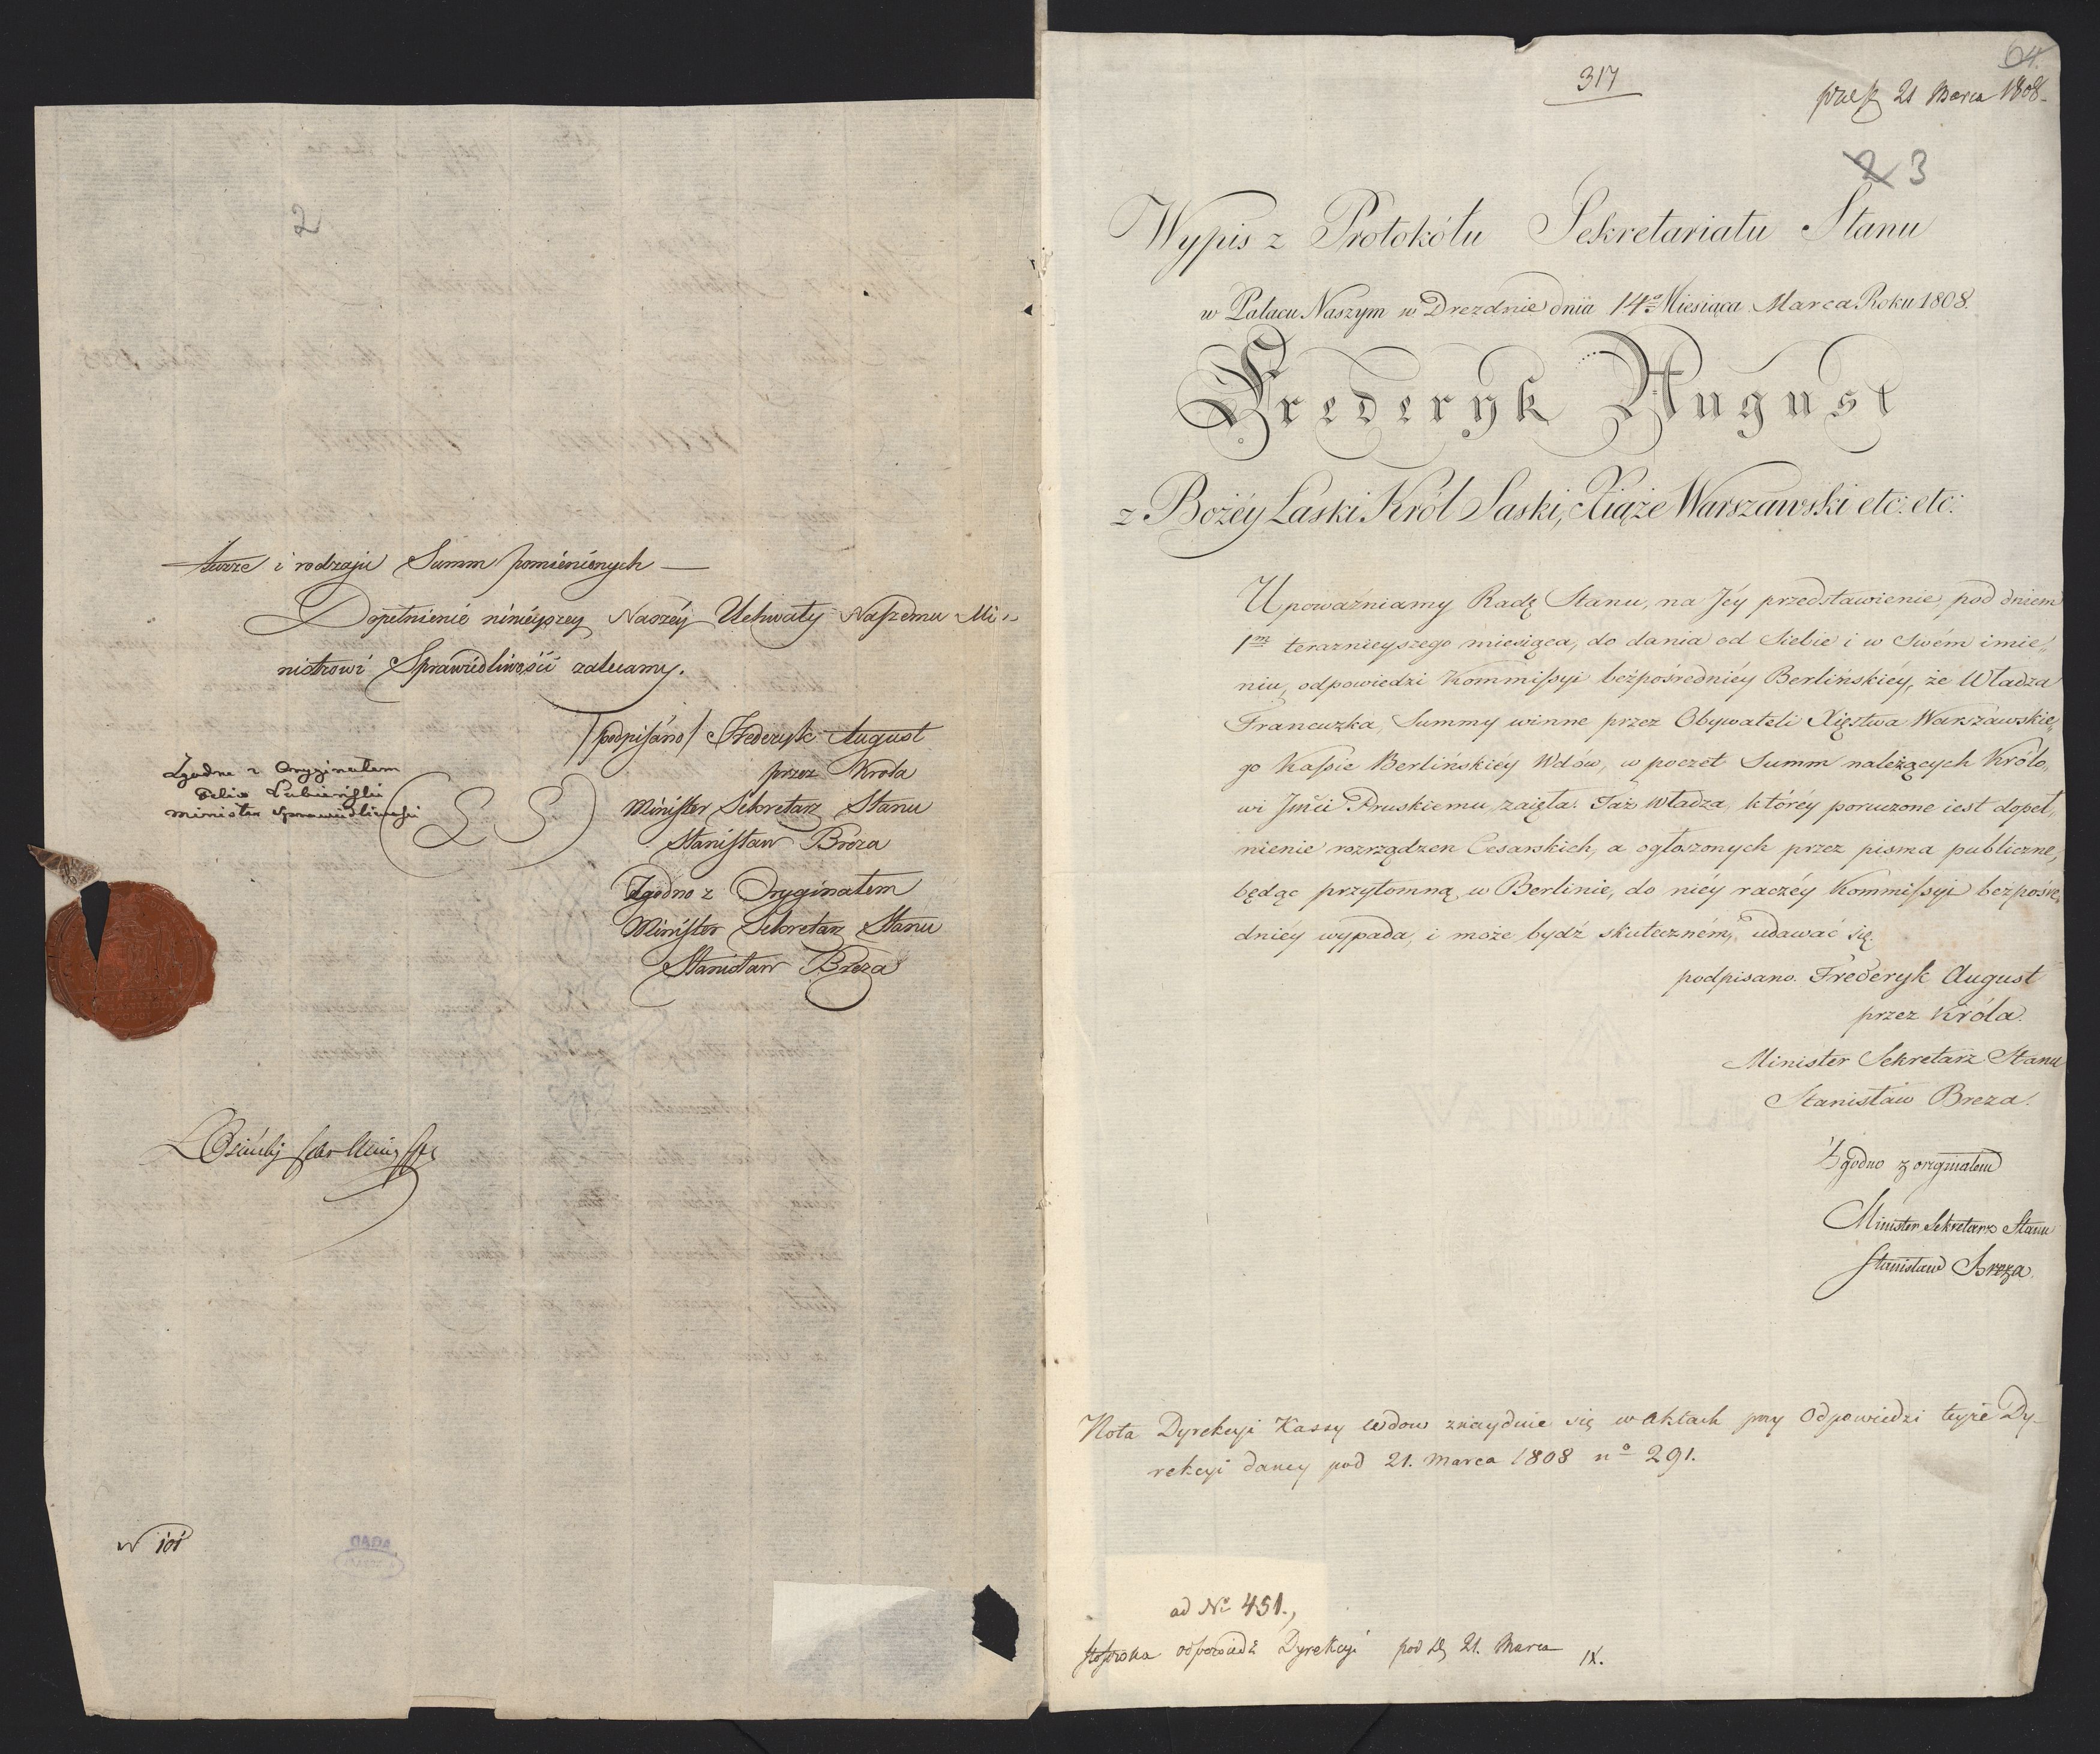 2
turze i rodzaju Summ pomienionych —
Dopełnienie ninieyszey Naszéy Uchwały Naszemu Mi„
nistrowi Sprawiedliwości zalecamy.
/podpisano/ Frederyk August
przez Króla
Minister Sekretarz Stanu
Stanisław Breza
(L S)
Zgodno z Oryginałem
Minister Sekretarz Stanu
Stanisław Breza
Zgodne z Oryginałem
Felix Lubieński
Minister Sprawiedliwości
N 101
AGAD
64.
317
21 Marca 1808.
2 3
Wypis z Protokółu Sekretariatu Stanu
w Pałacu Naszym w Dreznie dnia 14º Miesiąca Marca Roku 1808.
Frederyk August
z Bożéy Łaski Król Saski, Xiąże Warszawski etc: etc:
Upoważniamy Radę Stanu, na Jéy przedstawienie pod dniem
1m teraznieyszego miesiąca, do dania od Siebie i w Swém imie„
niu, odpowiedzi Kommissyi bezpośredniéy Berlińskiéy, że Władza
Francuzka, Summy winne przez Obywateli Xięztwa Warszawskie„
go Kassie Berlińskiéy Wdów, w poczet Summ należących Królo„
wi Jmci Pruskiemu zaięła. Taż Władza, któréy poruczone iest dopeł„
nienie rozrządzen Cesarskich, a ogłoszonych przez pisma publiczne,
będąc przytomną w Berlinie, do niéy raczéy Kommissyi bezpośre„
dniéy wypada, i może bydź skuteczném, udawać się.
podpisano. Frederyk August
przez Króla.
Minister Sekretarz Stanu
Stanisław Breza.
Zgodno z orginałem
Minister Sekretarz Stanu
Stanisław Breza.
Nota Dyrekcyi Kassy Wdow znayduie się w aktach przy Odpowiedzi teyże Dy-
rekcyi daney pod 21. Marca 1808 nº 291.
ad Nº 451.,
odpowiedź Dyrekcyi pod 21. Marca IX.